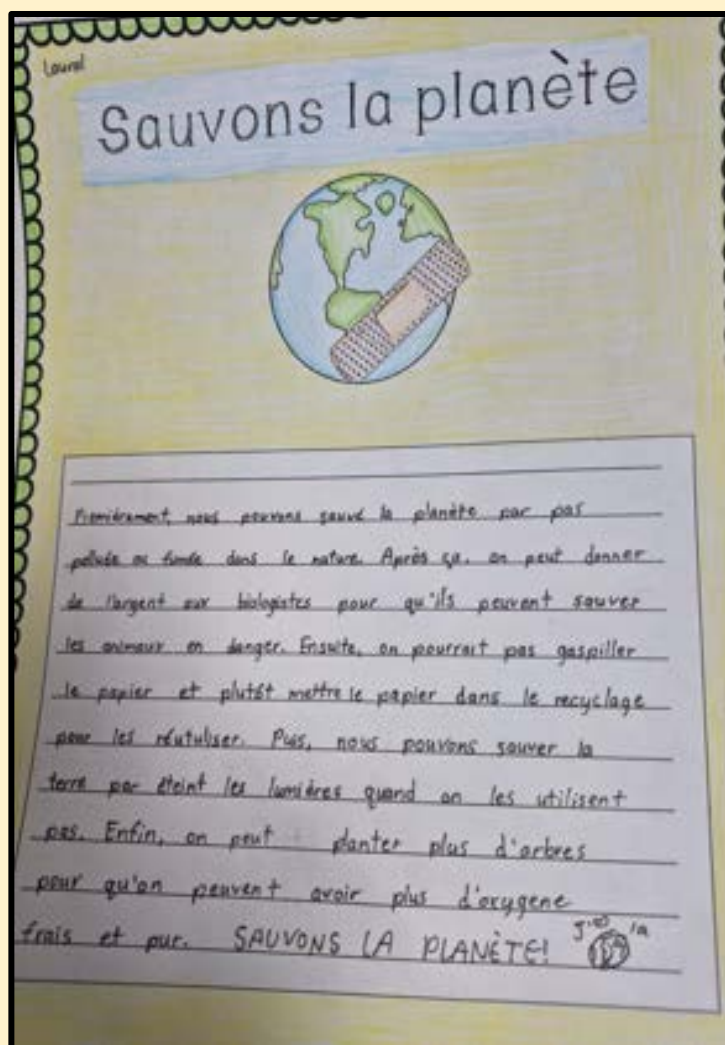 Laurel
Sauvons la planète
Premièrement, nous pouvons sauvé la planète par pas
polluée ou fumée dans le nature. Après ça, on peut donner
de l'argent aux biologistes pour qu'ils peuvent sauver
les animaux en danger. Ensuite, on pourrait pas gaspiller
le papier et plutôt mettre le papier dans le recyclage
pour les réutuliser. Puis, nous pouvons sauver la
terre par éteint les lumières quand on les utilisent
pas. Enfin, on peut planter plus d'arbres
pour qu'on peuvent avoir plus d'oxygene
frais et pur. SAUVONS LA PLANÈTE! J'♡ la